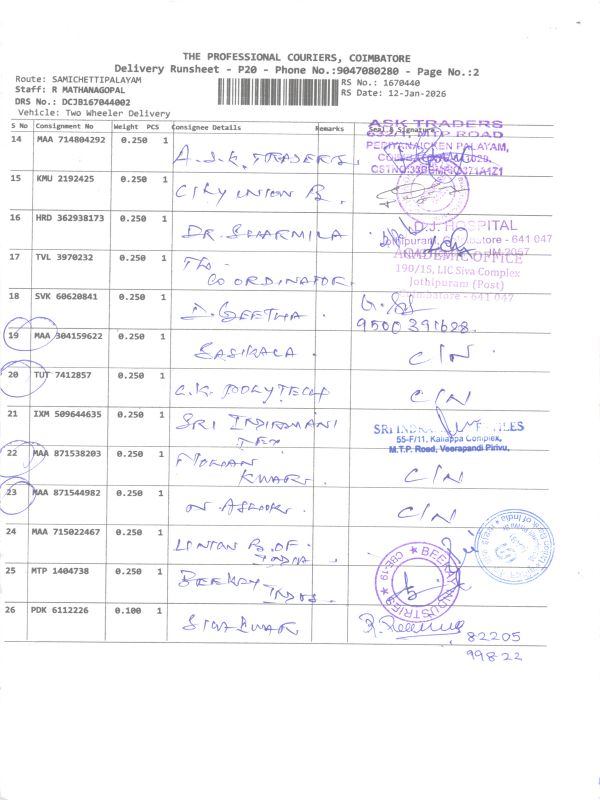 THE PROFESSIONAL COURIERS, COIMBATORE
Delivery Runsheet - P20 - Phone No.:9047080280 - Page No.:2
Route: SAMICHETTIPALAYAM
RS No.: 1670440
Staff: R MATHANAGOPAL
RS Date: 12-Jan-2026
DRS No.: DCJB167044002
Vehicle: Two Wheeler Delivery
S No Consignment No Weight PCS Consignee Details Remarks Seal & Signature
14 MAA 714804292 0.250 1 A.S.K. TRADERS.
ASK TRADERS
MTP ROAD
PERIYANAICKEN PALAYAM,
15 KMU 2192425 0.250 1 CITY UNION B.
16 HRD 362938173 0.250 1 DR. SHARMILA
D.J. HOSPITAL
Jothipuram, Coimbatore - 641 047
17 TVL 3970232 0.250 1 The - CO ORDINATOR.
ACADEMIC OFFICE
190/15, LIC Siva Complex
Jothipuram (Post)
Coimbatore - 641 047
18 SVK 60620841 0.250 1 D. GEETHA.
9500391628.
19 MAA 304159622 0.250 1 SASIKALA. C/N
20 TUT 7412857 0.250 1 C.K. POLYTECH C/N
21 IXM 509644635 0.250 1 SRI INDIRMANI TEX
SRI
55-F/11, Kaliappa Complex,
M.T.P. Road, Veerapandi Pirivu,
22 MAA 871538203 0.250 1 C/N
23 MAA 871544982 0.250 1 N. ASHOK. C/N
24 MAA 715022467 0.250 1 UNION B. OF. INDIA.
25 MTP 1404738 0.250 1 BEEKAY INDS.
BEEKAY INDUSTRIES
CBE-19
26 PDK 6112226 0.100 1 SIVAKUMAR
82205
99822